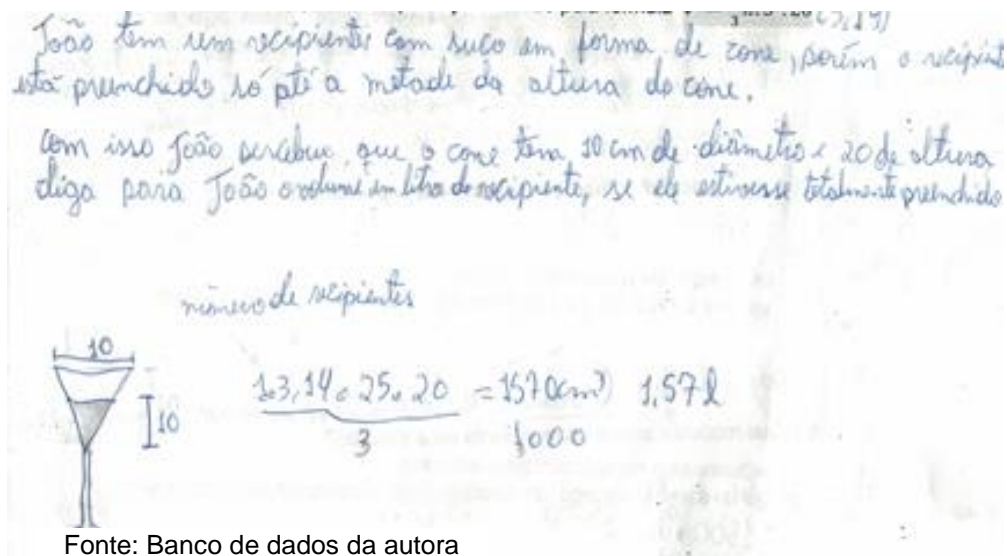 (3,14)
João tem um recipiente com suco em forma de cone, porém o recipiente
está preenchido só até a metade da altura do cone.
Com isso João percebeu que o cone tem 10 cm de diâmetro e 20 de altura
diga para João o volume em litro do recipiente, se ele estivesse totalmente preenchido
número de recipientes
10
10
1.3,14.25.20 = 1570(cm³) 1,57l
3 1000
Fonte: Banco de dados da autora